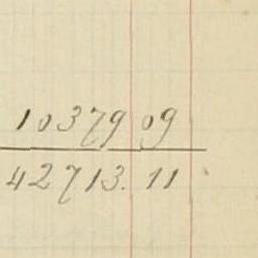 10379 09
42713. 11